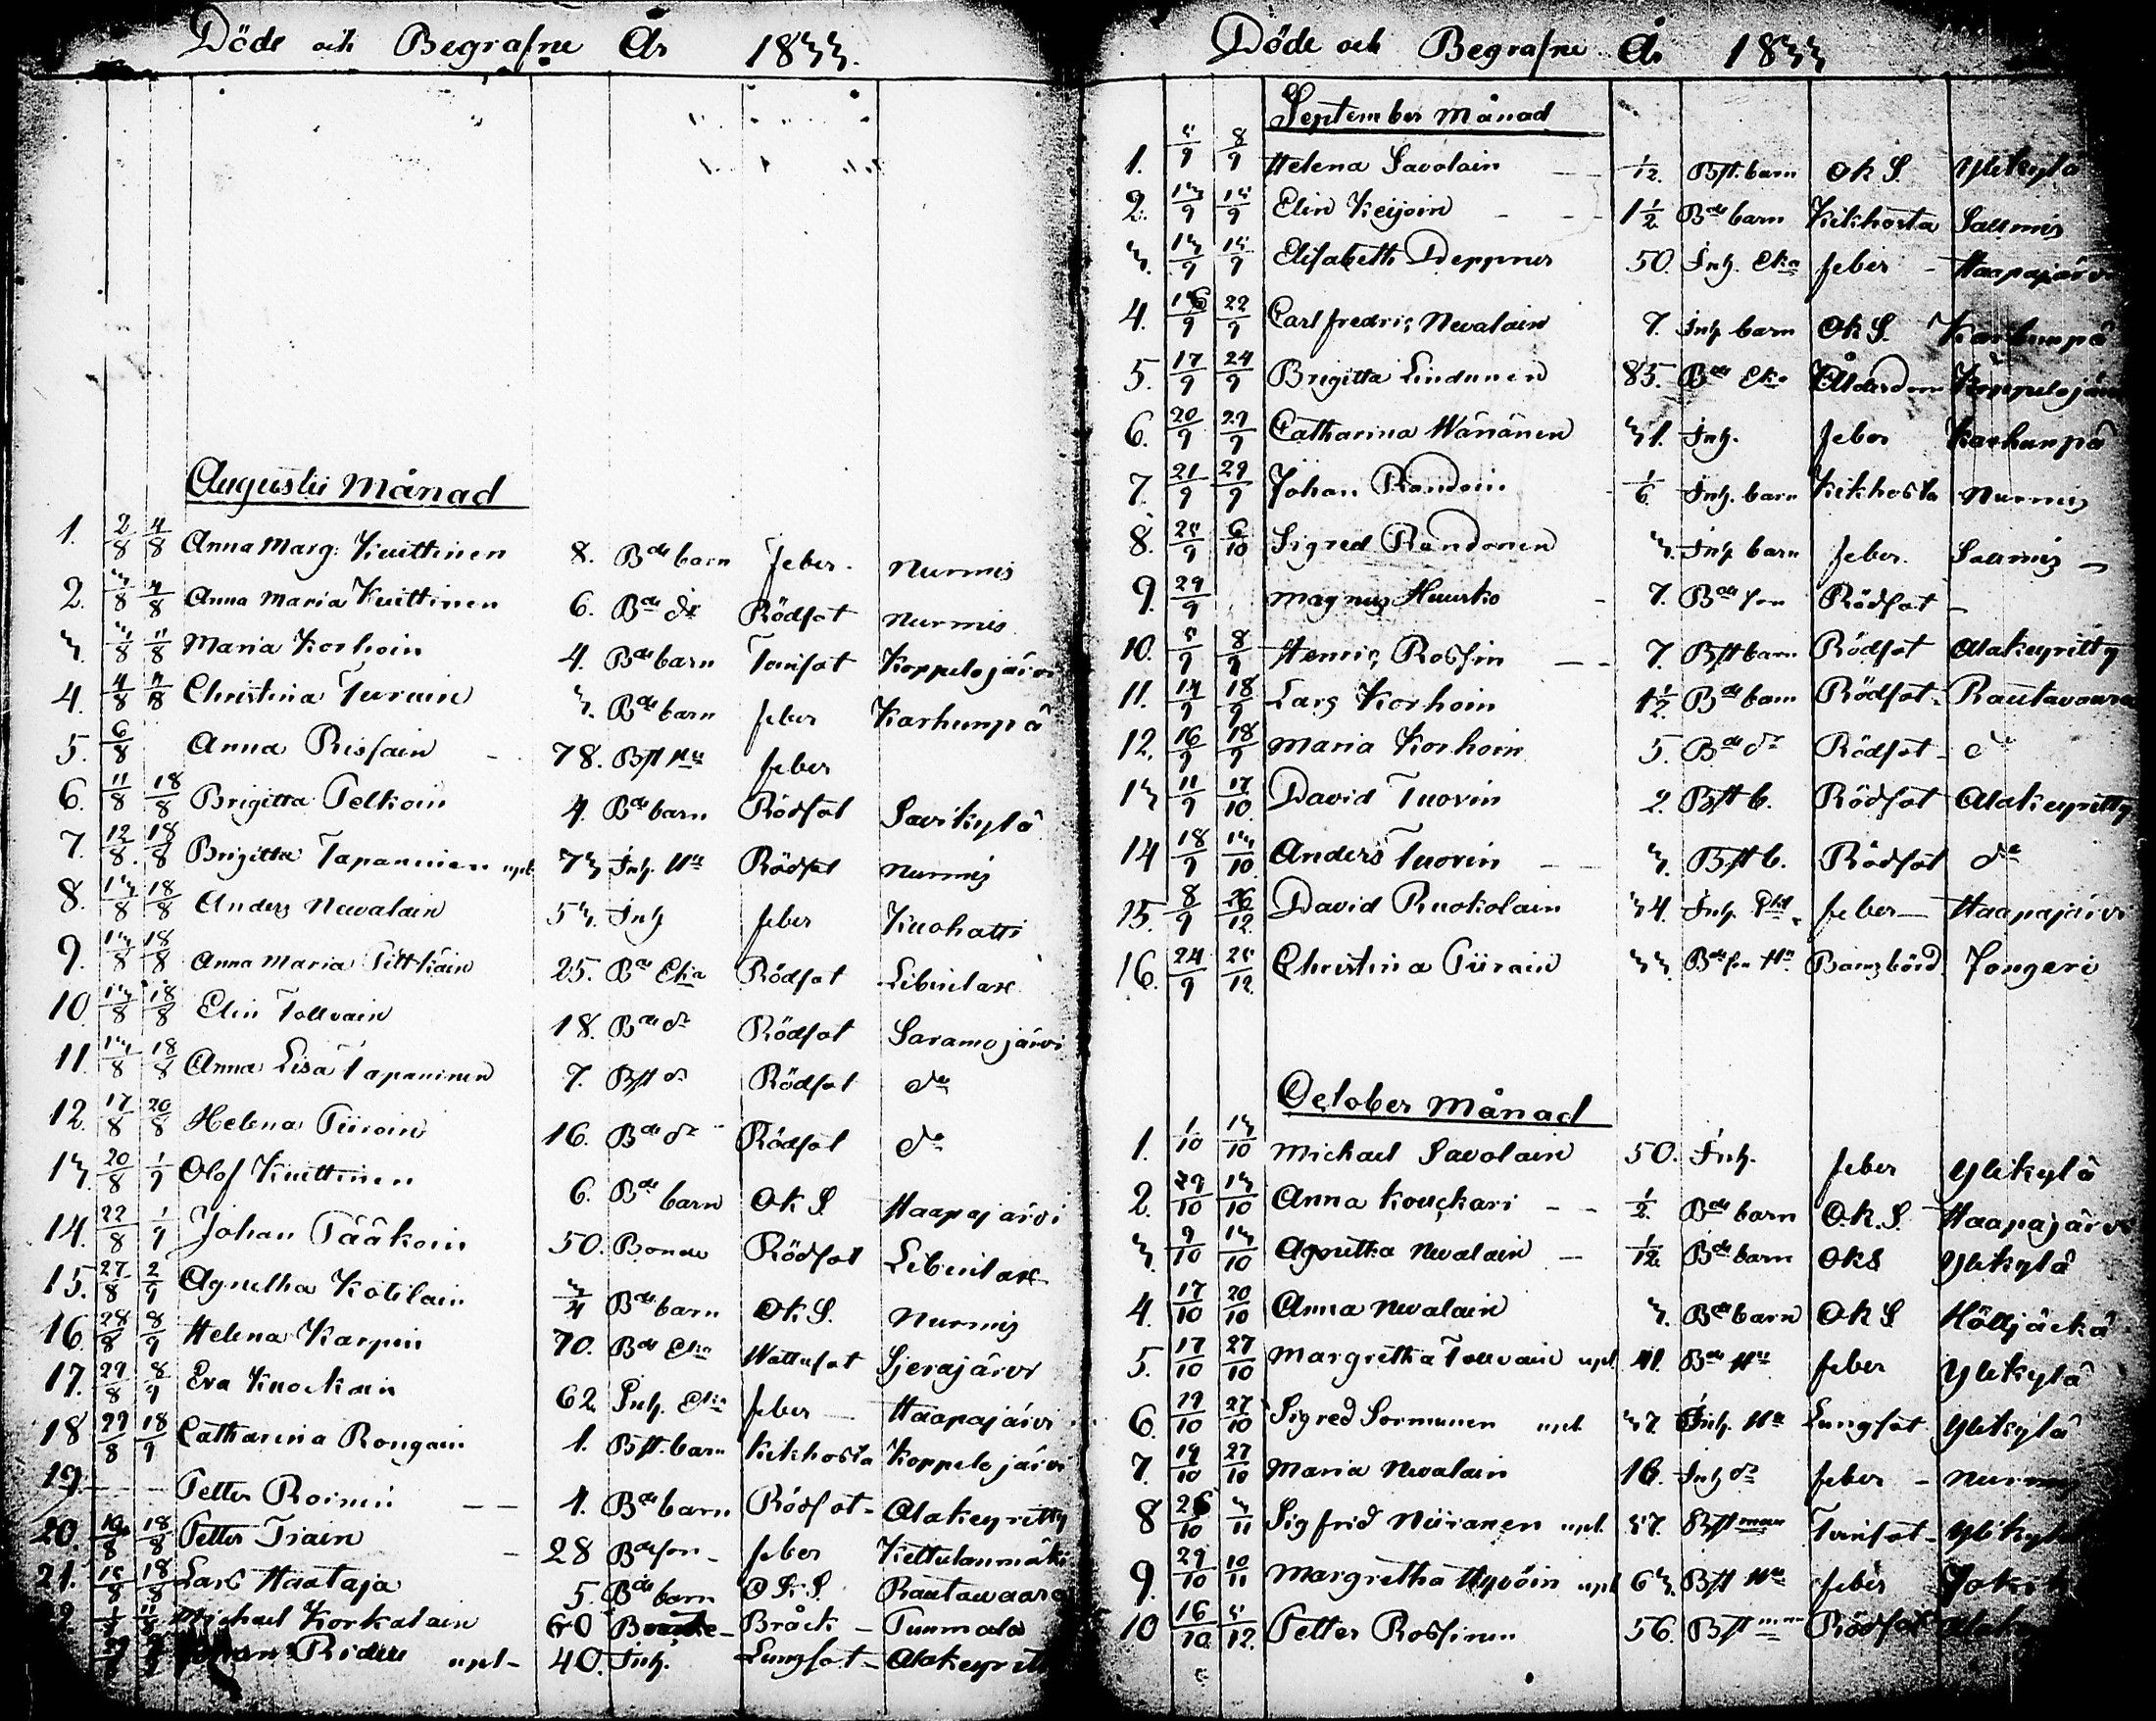 Döde och Begrafne År 1833.
Augusti Månad
1. 2/8 4/8 Anna Marg: Kuittinen 8. Bde barn feber. Nurmis
2. 3/8 4/8 Anna Maria Kuittinen 6. Bde dr Rödsot Nurmis
3. 3/8 11/8 Maria Korhoin 4. Bde barn Tvinsot Koppelojärvi
4. 4/8 11/8 Christina Turuin 3. Bde barn feber Karhunpä
5. 6/8 Anna Rissain 78. Bst Hu feber
6. 11/8 18/8 Brigitta Pelkoin 4. Bde barn Rödsot Savikylä
7. 12/8. 18/8 Brigitta Tapaninen upl. 73 Inh. Hu Rödsot Nurmis
8. 13/8 18/8 Anders Nevalain 53. Inh feber Kuohatti
9. 13/8 18/8 Anna Maria Pitkäin 25. Bde Eka Rödsot Libelitare
10 13/8 18/8 Elin Tolvain 18. Bde dr Rödsot Saramojärvi
11. 13/8 18/8 Anna Lisa Tapaninen 7. Bst dr Rödsot do
12. 17/8 20/8 Helena Piiroin 16. Bde dr Rödsot do
13. 20/8 1/9 Olof Kuittinen 6. Bde barn Ok S. Haapajärvi
14. 22/8 1/9 Johan Pääkoin 50. Bonde Rödsot
15. 27/8 2/9 Agnetha Kotilain 3/4 Bde barn Ok S. Nurmis
16. 28/8 8/9 Helena Karpin 70. Bde Eka Wattusot Sjerajärvi
17. 29/8 8/9 Eva Knockain 62 Inh. Eka feber Haapajärvi
18 29/8 18/9 Catharina Rongain 1. Bst. barn Kikhosta Koppelojärvi
19. — — Petter Roinin — — 1. Bde barn Rödsot - Alakeyritty
20. 18/8 Petter Piain - 28 Bde son - feber Kettulanmäki
21. 15/8 18/8 Lars Haataja 5. Bde barn O K. S. Rautawaara
Michael Korkalain 60 Bråck - Tuomala
Riden upl - 40. Inh. Lungsot -
Döde och Begrafne År 1833
September Månad
1. 5/9 8/9 Helena Savolain — 1/12. Bst. barn Ok S. Ylikylä
2. 13/9 15/9 Elin Keijoin - - 1 1/2 Bde barn Kikhosta Salmis
3. 13/9 15/9 Elisabeth Deppner 50. Inh. Eka feber - Haapajärvi
4. 16/9 22/9 Carl fredric Nevalain 7. Inh barn Ok S. Karhunpä
5. 17/9 24/9 Brigitta Lindunen 85. Bde Eka Ålderdom
6. 20/9 29/9 Catharina Wänänen 31. Inh. feber Karhunpä
7. 21/9 29/9 Johan Randoin 1/6 Inh. barn Kikhosta Nurmis
8. 25/9 6/10 Sigred Randonen 3. Inh barn feber. Salmis -
9. 29/9 Magnus Huusko - 7. Bde son Rödsot -
10. 5/9 8/9 Henric Rossin — 7. Bst barn Rödsot Alakeyritty
11. 14/9 18/9 Lars Korhoin 1 1/2. Bde barn Rödsot - Rautavaara
12. 16/9 18/9 Maria Korhoin 5. Bde dr Rödsot - do
13 11/9 17/10. David Tuovin 2. Bst b. Rödsot Alakeyritty
14 18/9 13/10 Anders Tuovin — 3. Bst b. Rödsot do
15. 8/9 26/12. David Ruokolain 34. Inh. feber — Haapajärvi
16. 24/9 25/12. Christina Piirain 33. Bde son Hu Barnsbörd Jongeri
October Månad
1. 1/10 13/10 Michael Savolain 50. Inh. feber Ylikylä
2. 29/10 13/10 Anna Kouckari — 1/2. Bde barn O.k. S. Haapajärvi
3 9/10 13/10 Agnetha Nevalain — 1/12. Bde barn Oks Ylikylä
4. 17/10 20/10 Anna Nevalain 3. Bde barn Ok S Höljäckä
5. 17/10 27/10 Margretha Tolvain upl. 41. Bde Hu feber Ylikylä
6. 19/10 27/10 Sigred Sormunen upl. 37 Inh. Hu Lungsot Ylikylä
7. 19/10 27/10 Maria Nevalain 16. Inh dr feber -
8 26/10 3/11 Sigfrid Niiranen upl. 57. Bst man Tvinsot -
9. 29/10 10/11 Margretha Hyvöin upl 63. Bst Hu feber
10 16/10. 5/12. Petter Rossinen 56. Bst man Rödsot